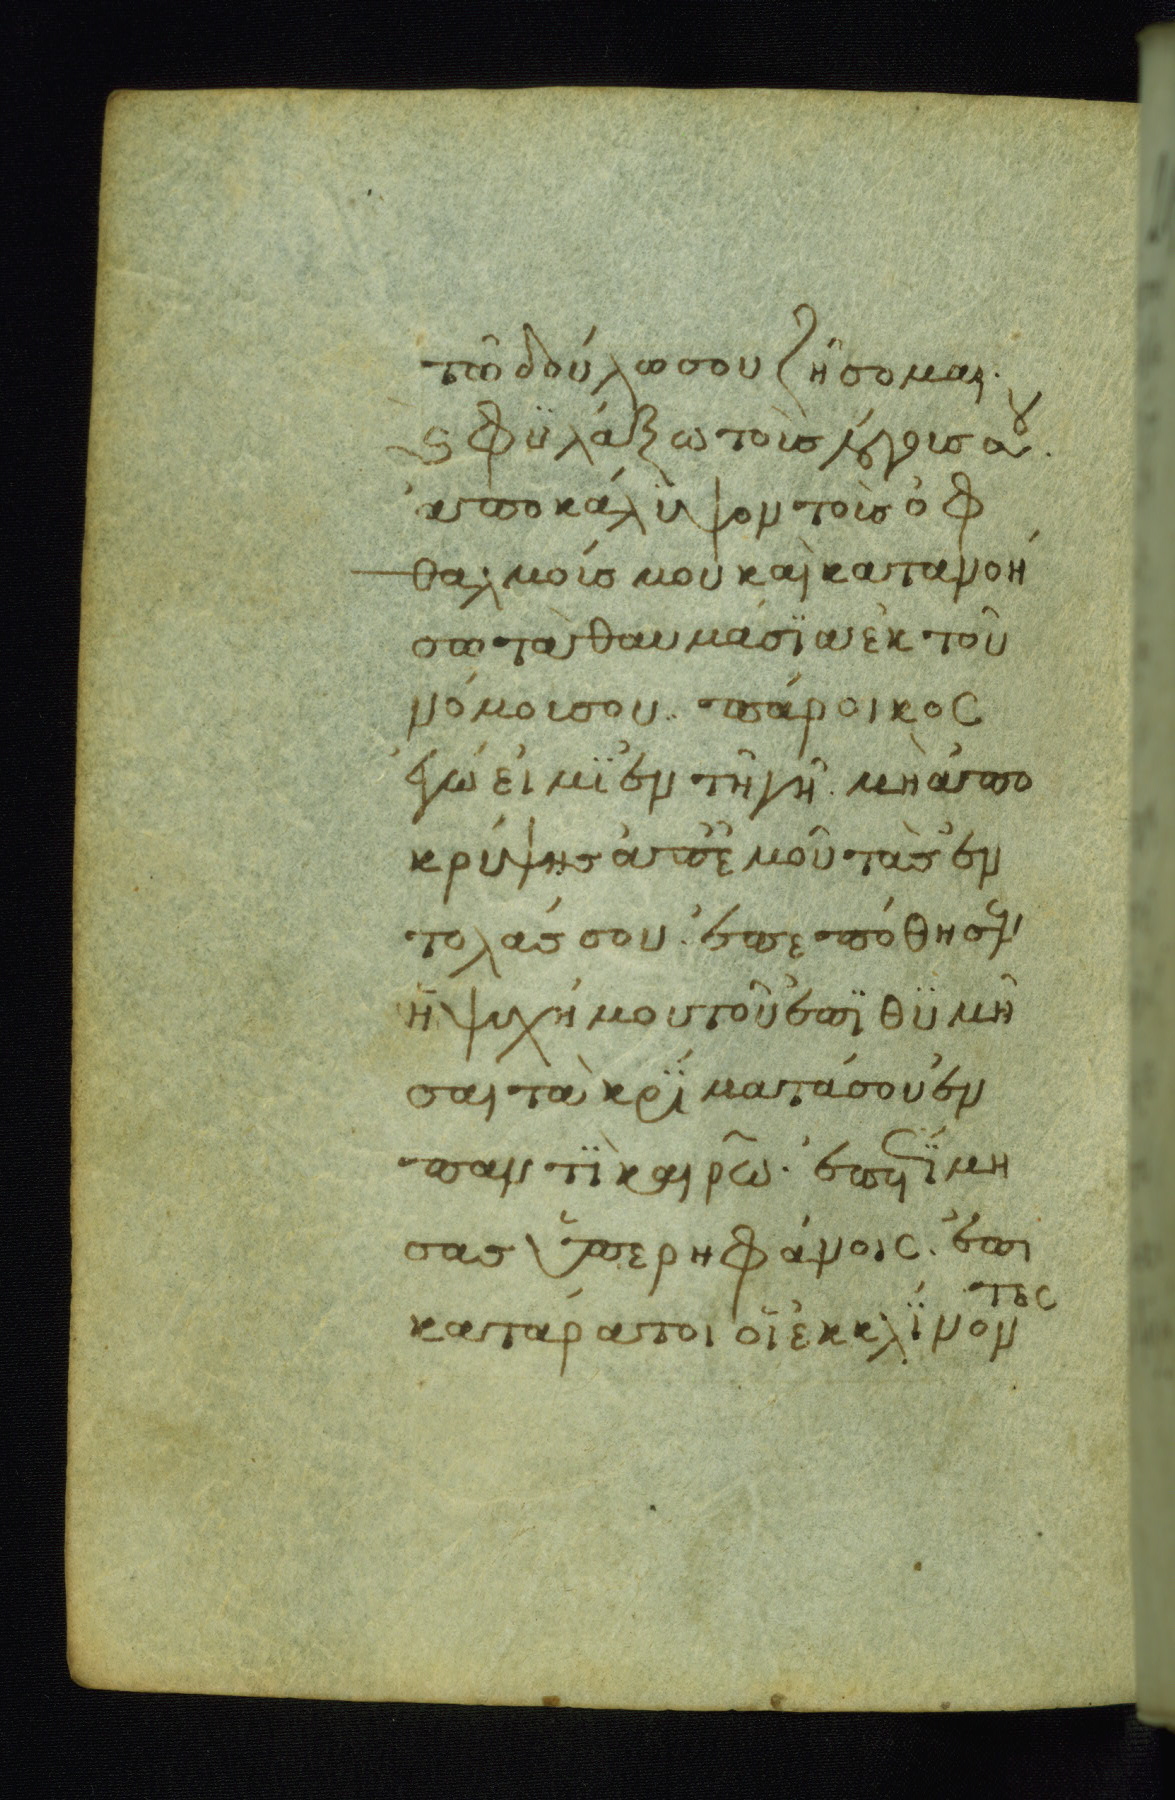 τῶ δούλω σου ζήσομαι.
ϛ φϋλάξω τοὺς λόγους σου.
ἀποκάλϋψον τοὺς ὀφ
θαλμούς μου καὶ κατανοή
σω τὰ θαυμάσϊα ἐκ τοῦ
νόμου σου. πάροικος
ἐγώ εἰμϊ ἐν τῆ γῆ. μὴ ἀπο
κρύψης ἀπ' ἐμοῦ τὰς ἐν
τολάς σου. ἐπεπόθησεν
ἡ ψυχή μου τοῦ ἐπϊθϋμῆ
σαι τὰ κρϊματά σου ἐν
παντϊ καιρῶ. ἐπετϊμη
σας ὑπερηφάνοις. ἐπι
κατάρατοι οἱ ἐκκλϊνον
τες